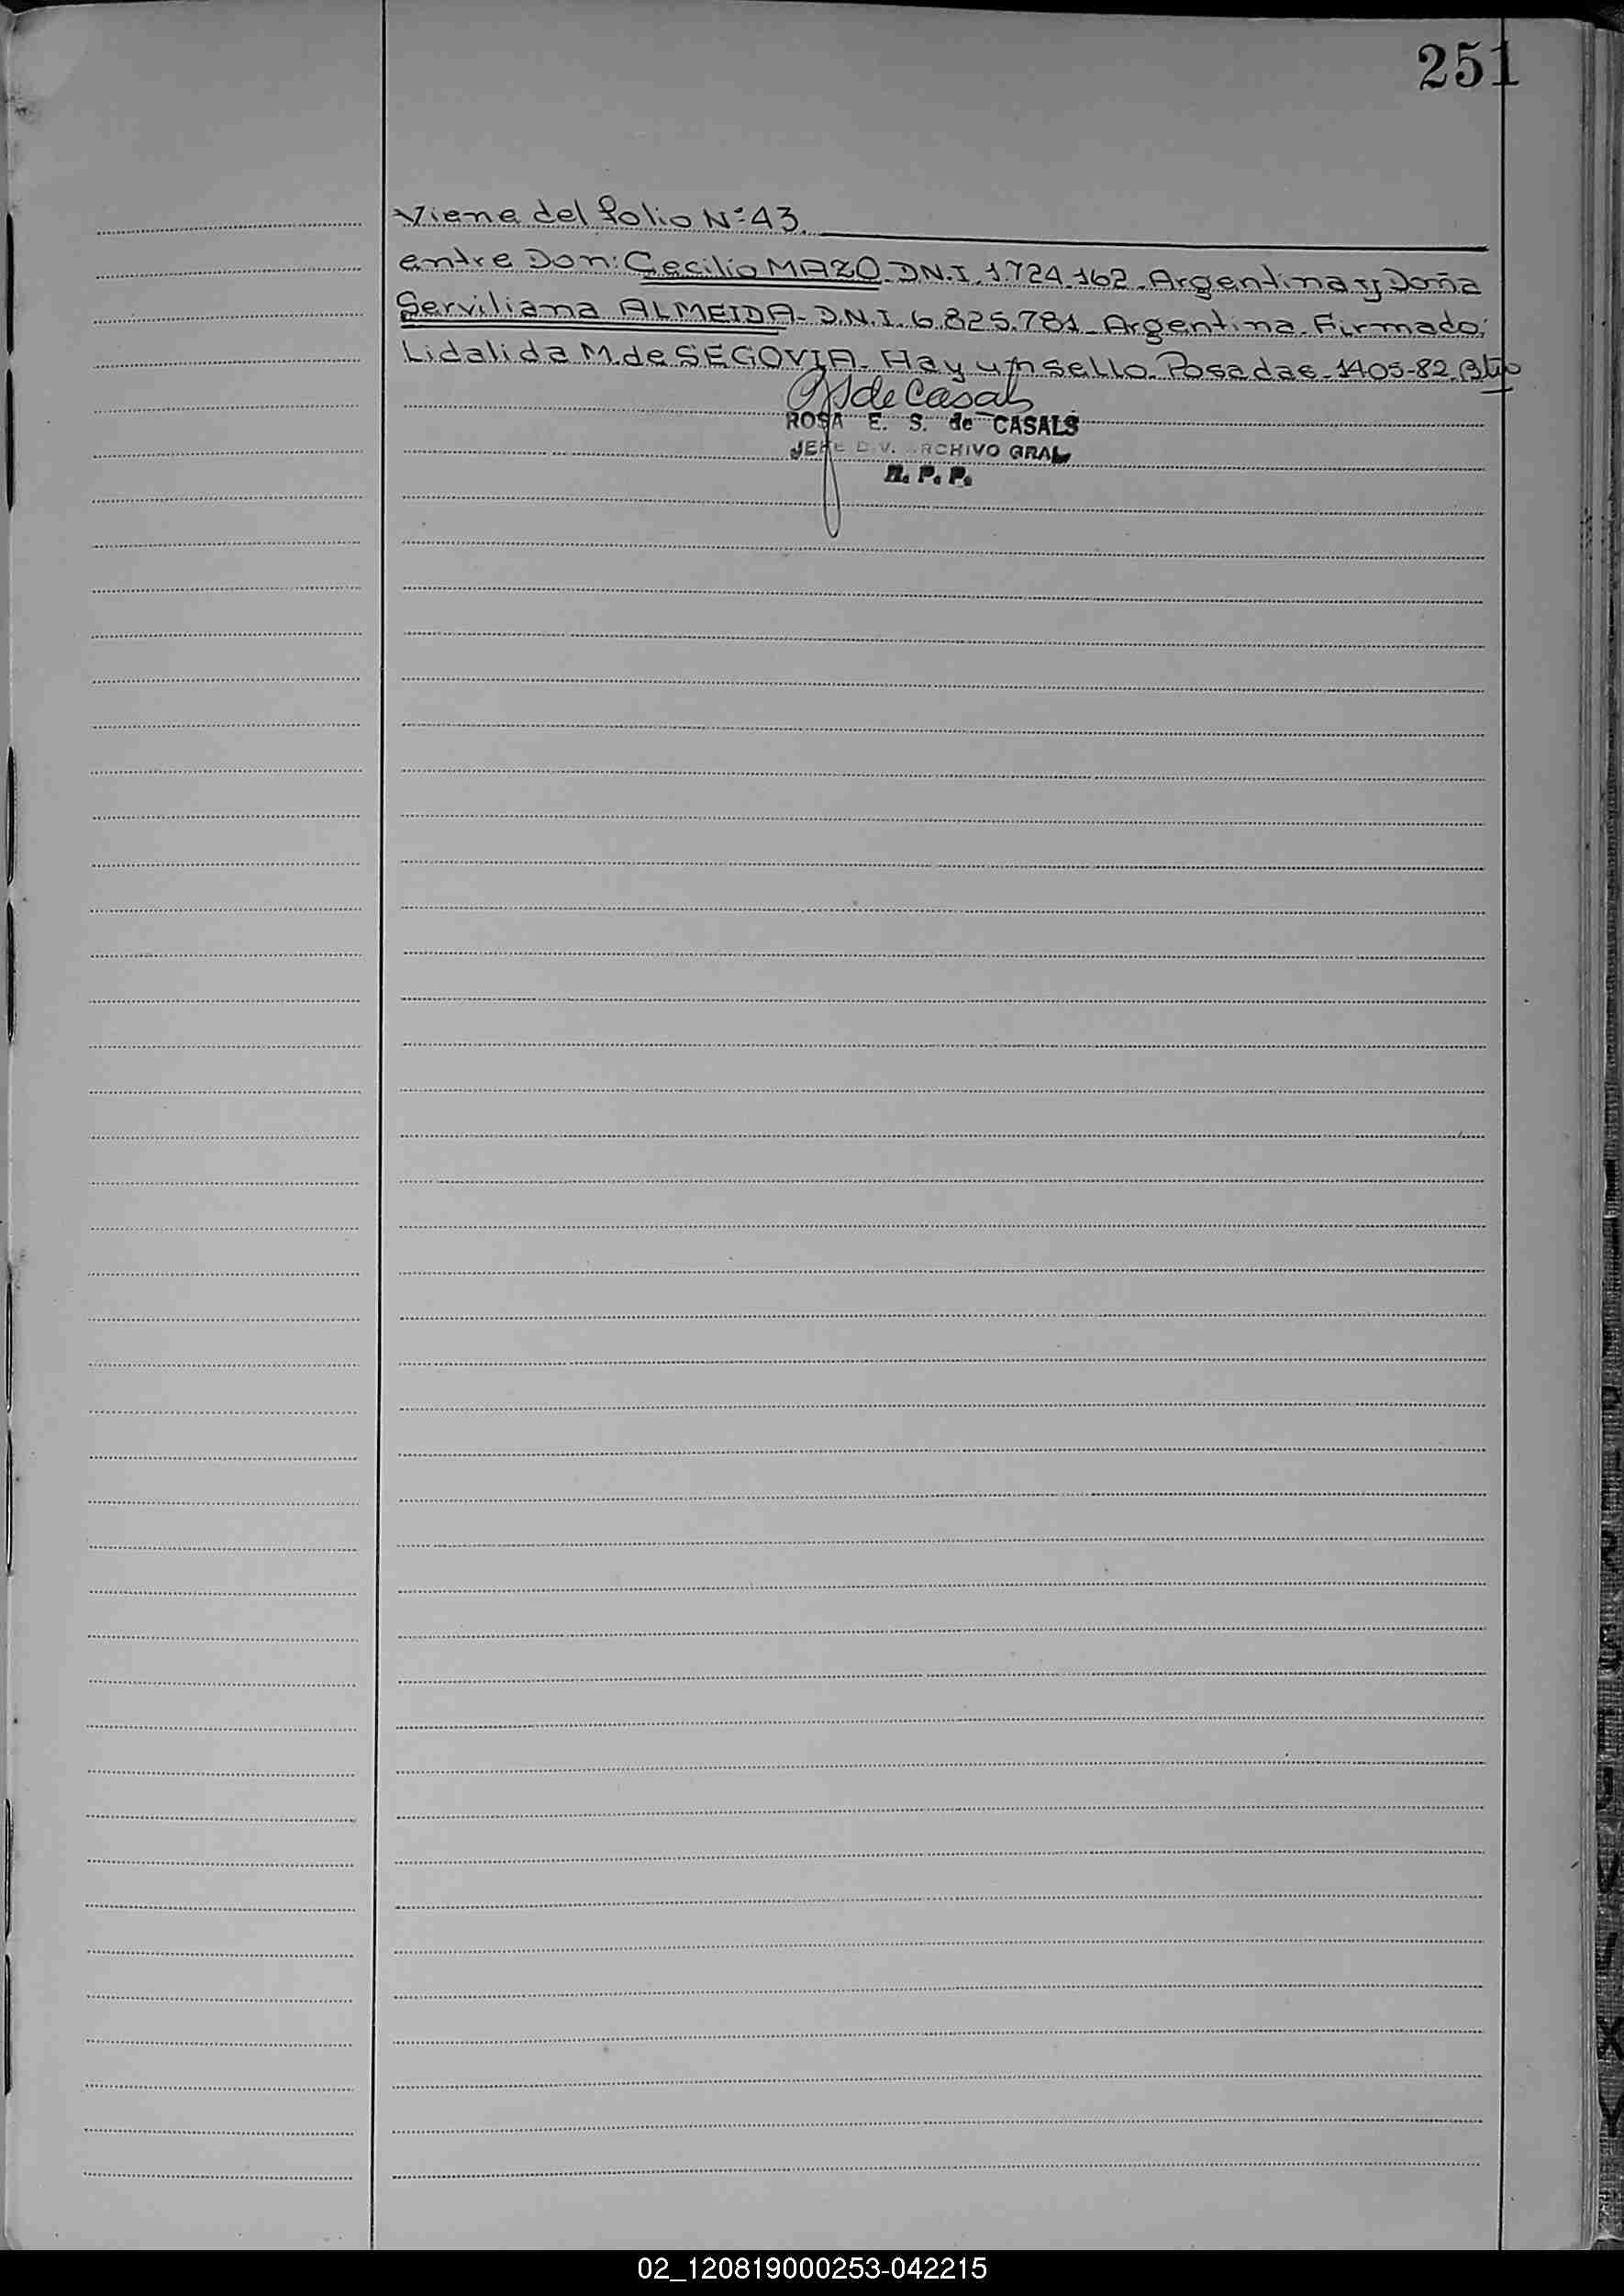 251
Viene del folio Nº 43.
entre Don: Cecilio MAZO. DN.I. 1.724.162. Argentina y Doña
Serviliana ALMEIDA. D.N.I. 6.825.781. Argentina. Firmado:
Lidalida M. de SEGOVIA. Hay un sello. Posadas. 1405-82.
de Casals
ROSA E. S. de CASALS
JEFE DIV. ARCHIVO GRAL
R. P. P.
02_120819000253-042215